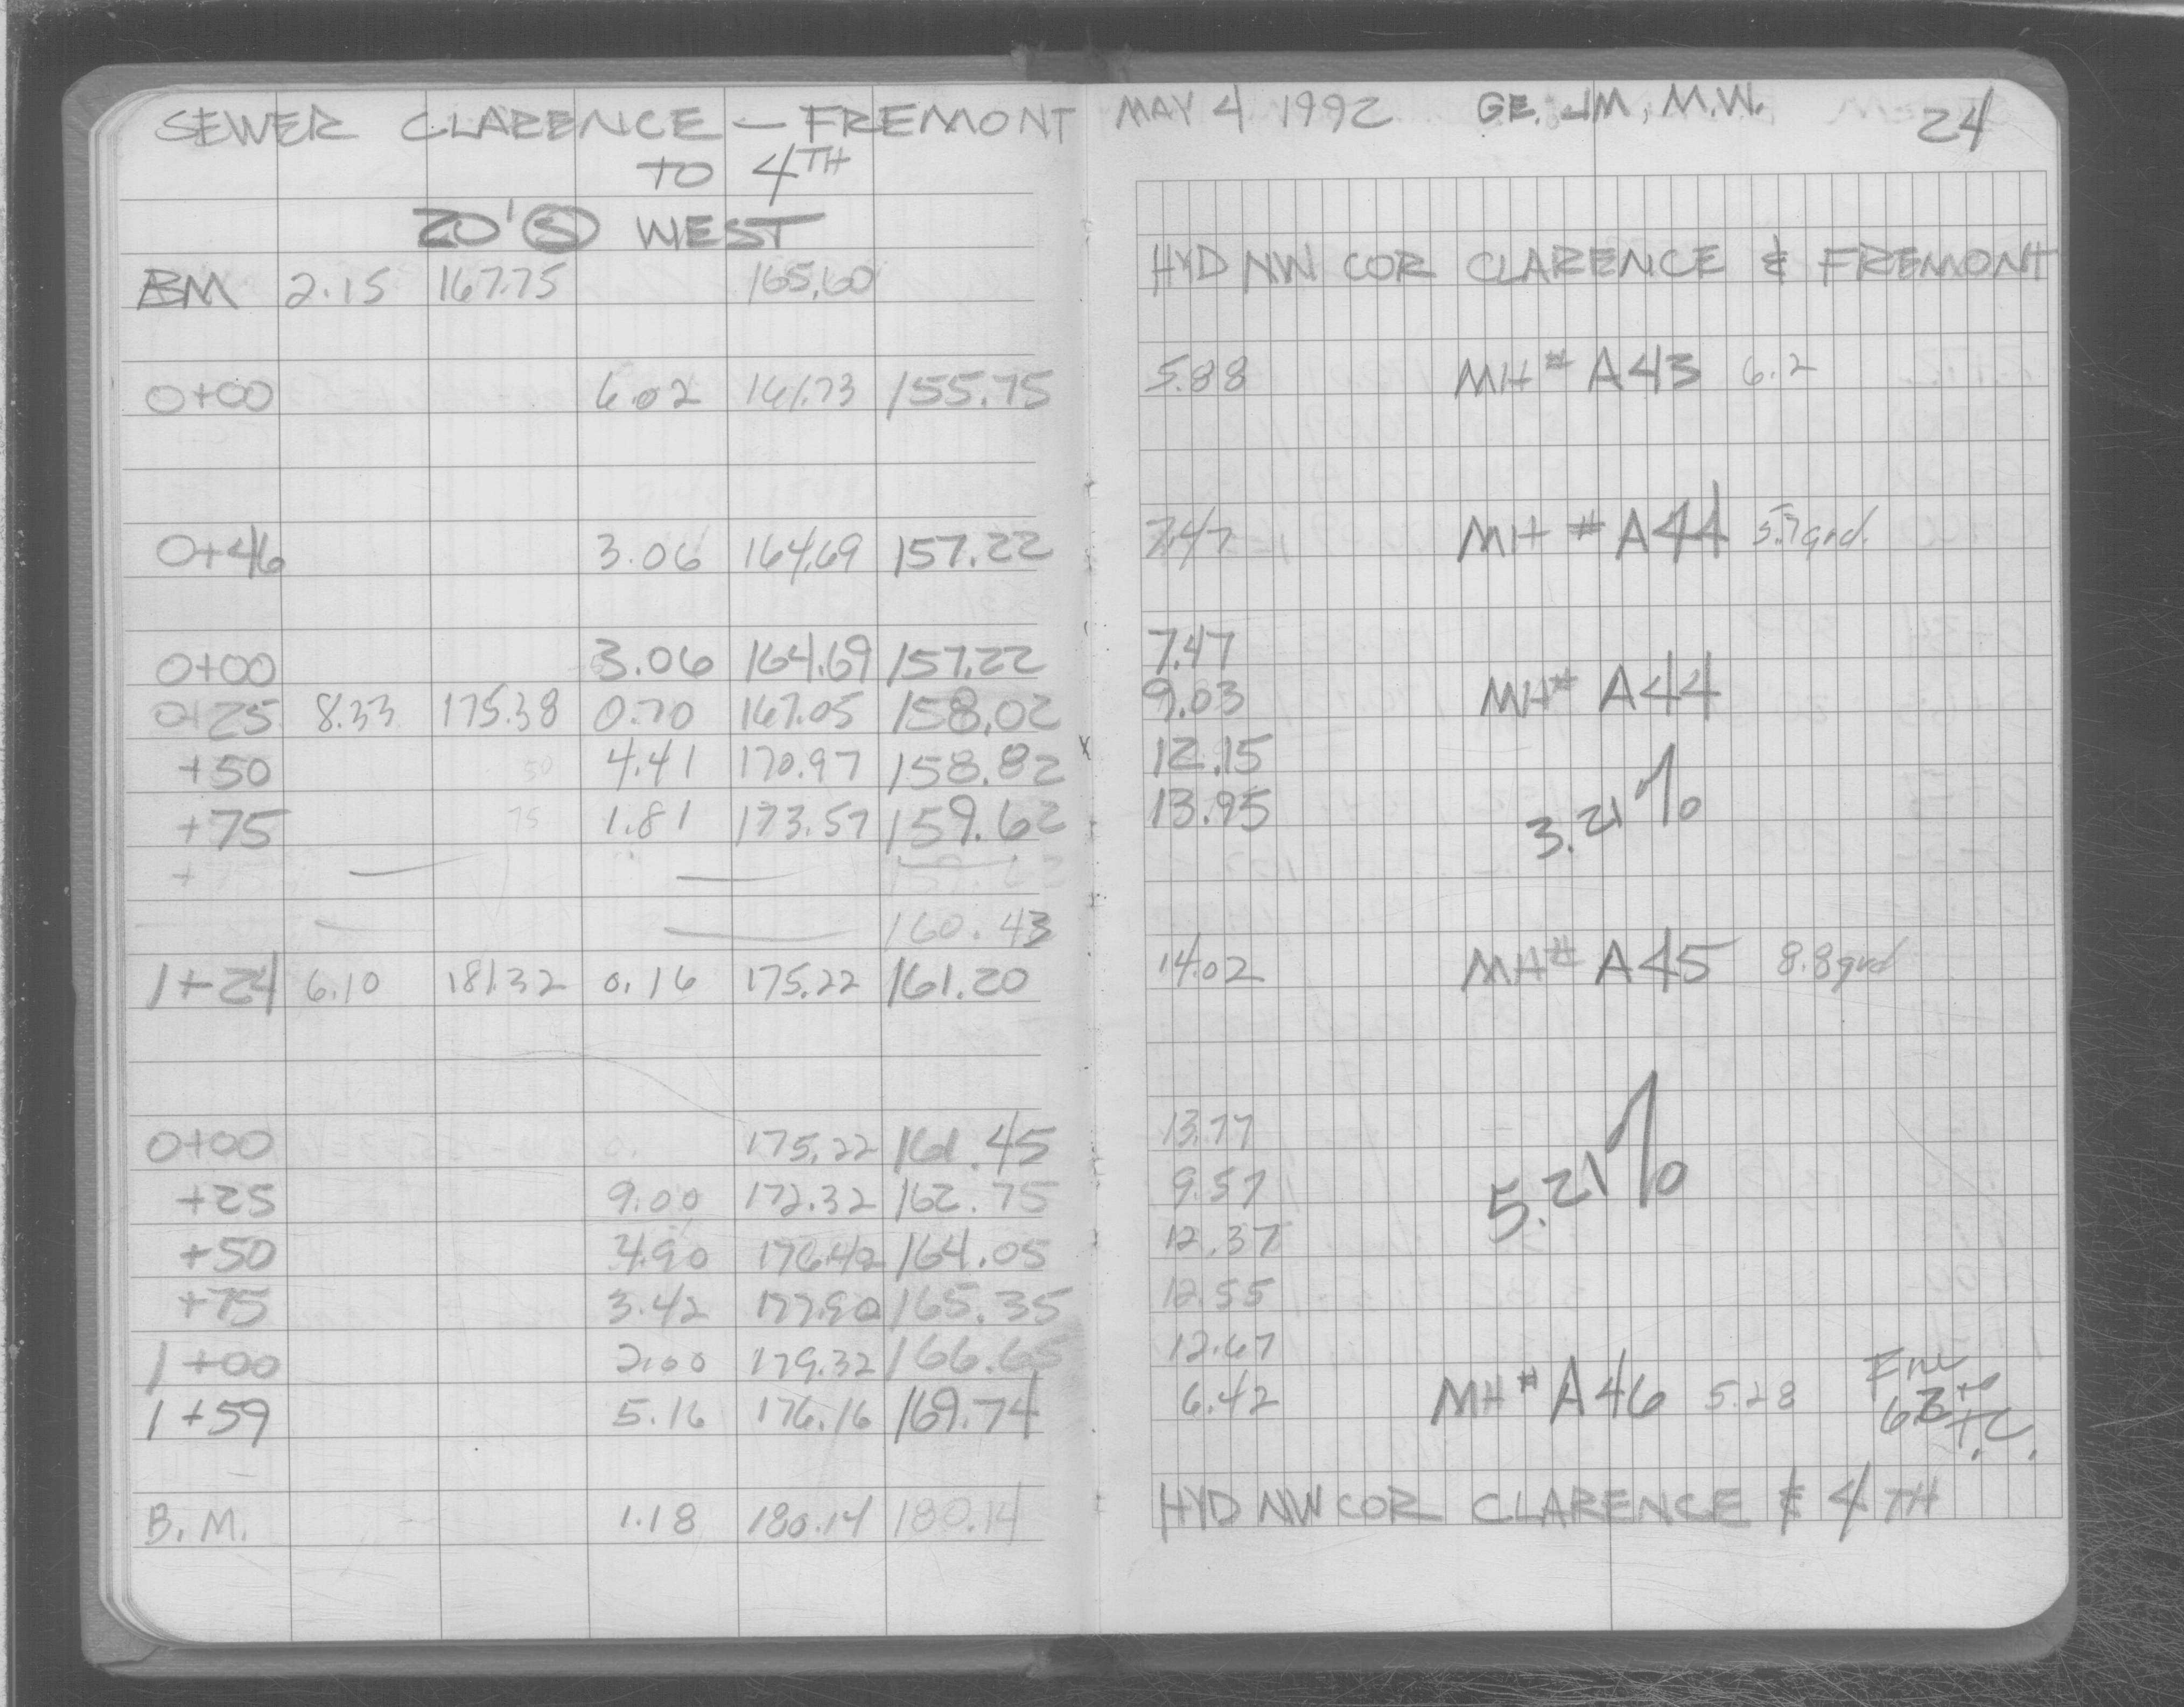 SEWER CLARENCE — FREMONT
TO 4TH
20' (S) WEST
BM 2.15 167.75 165.60
0+00 6.02 161.73 155.75
0+46 3.06 164.69 157.22
0+00 3.06 164.69 157.22
0+25 8.33 175.38 0.70 167.05 158.02
+50 50 4.41 170.97 158.82
+75 75 1.81 173.57 159.62
+75 159.62
160.43
1+24 6.10 181.32 0.16 175.22 161.20
0+00 175.22 161.45
+25 9.00 172.32 162.75
+50 4.90 176.42 164.05
+75 3.42 177.90 165.35
1+00 2.00 179.32 166.65
1+59 5.16 176.16 169.74
B.M. 1.18 180.14 180.14
MAY 4 1992 GE. JM, M.W. 24
HYD NW COR CLARENCE & FREMONT
5.88 MH# A43 6.2
7.47 MH # A44 5.7 grd.
7.47
9.03 MH# A44
12.15
13.95 3.21%
14.02 MH# A45 8.8 grd
13.77
9.57 5.21%
12.37
12.55
12.67
6.42 MH# A46 5.28
T.C.
HYD NW COR CLARENCE & 4TH